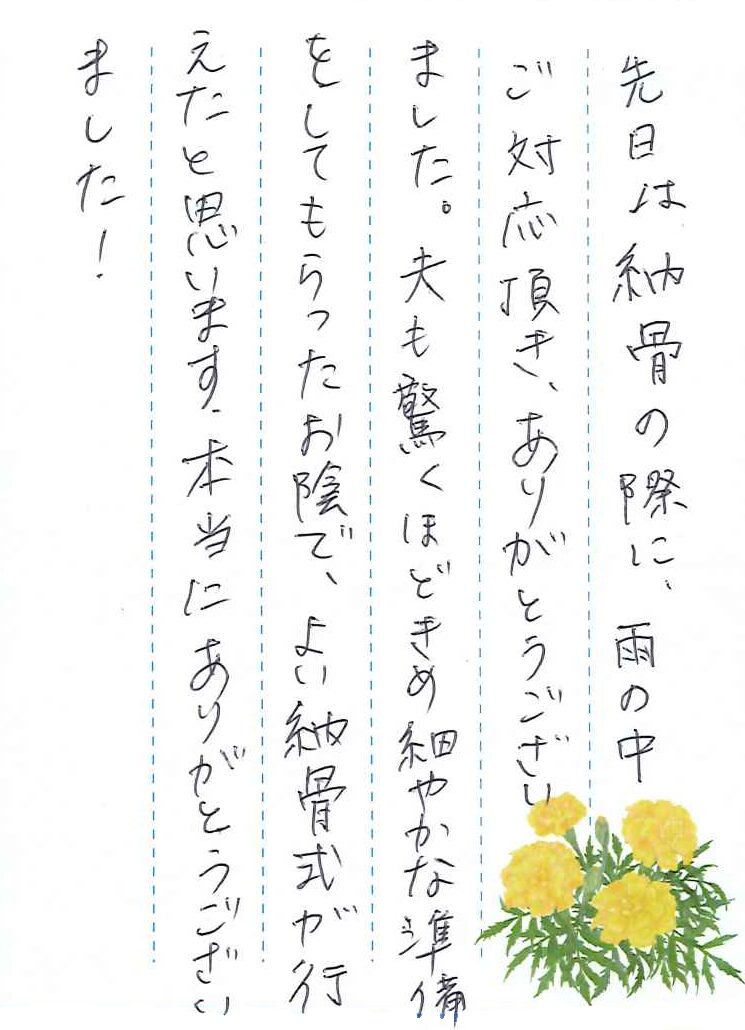 先日は納骨の際に、雨の中
ご対応頂き、ありがとうござい
ました。夫も驚くほどきめ細やかな準備
をしてもらったお陰で、よい納骨式が行
えたと思います。本当にありがとうござい
ました！